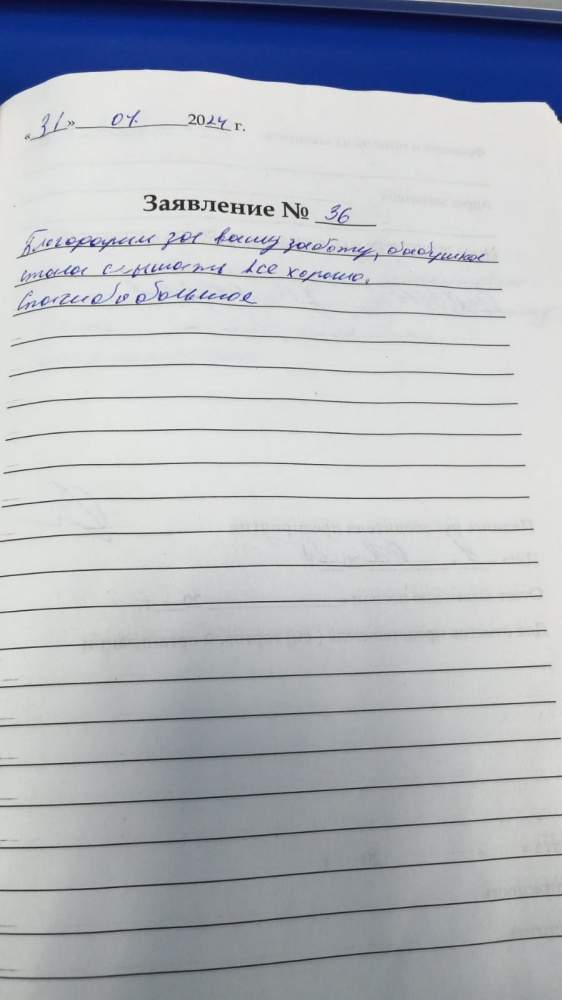 «31» 07. 2024 г.
Заявление № 36
Благодарим за вашу заботу, бабушка
стала слышать все хорошо.
Спасибо большое